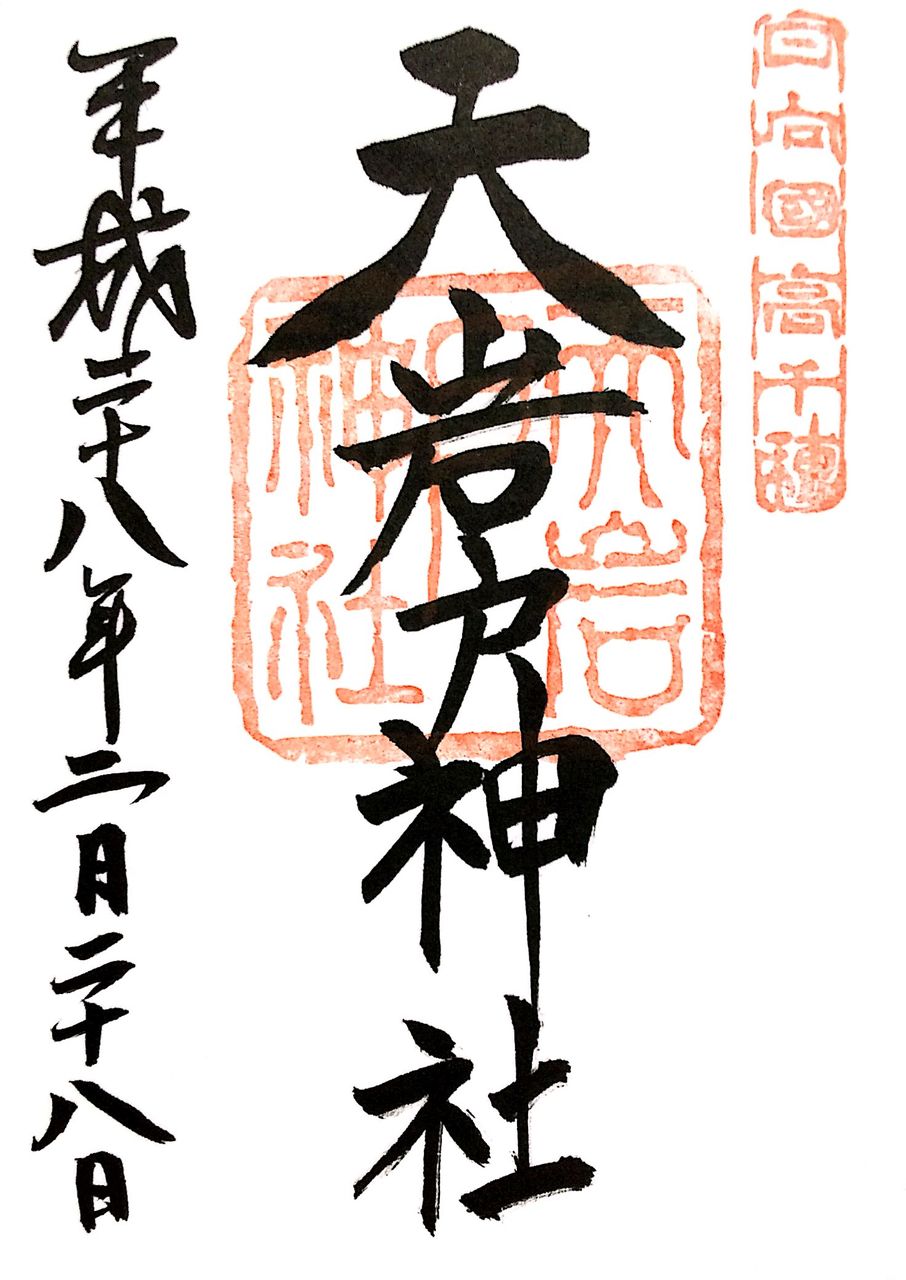 日向國高千穂
天岩戸神社
天岩戸
神社
平成二十八年二月二十八日